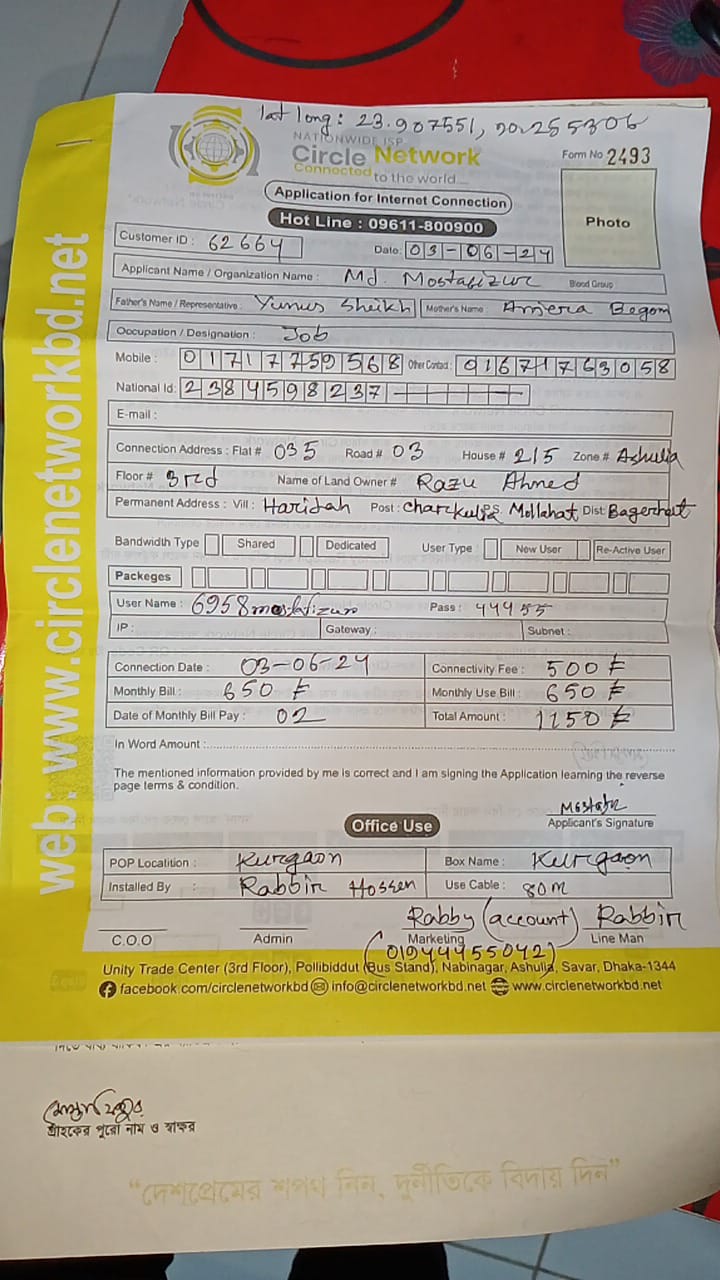 lat long: 23.907551, 90.255306
NATIONWIDE ISP
Circle Network
Connected to the world...
Form No 2493
Application for Internet Connection
Hot Line : 09611-800900
Photo
Customer ID : 62664
Date: 03-06-24
Applicant Name / Organization Name : Md. Mostafizur Blood Group
Father's Name / Representative : Yunus Sheikh Mother's Name : Anjera Begom
Occupation / Designation : Job
Mobile : 01717759568 Other Contact : 01671763058
National Id: 2384598237
E-mail :
Connection Address : Flat # 035 Road # 03 House # 215 Zone # Ashulia
Floor # 3rd Name of Land Owner # Razu Ahmed
Permanent Address : Vill : Haridah Post : Charkulia P.S. Mollahat Dist: Bagerhat
Bandwidth Type Shared Dedicated User Type : New User Re-Active User
Packeges
User Name : 6958mostafizur Pass : 44455
IP : Gateway : Subnet :
Connection Date : 03-06-24 Connectivity Fee : 500 ৳
Monthly Bill : 650 ৳ Monthly Use Bill : 650 ৳
Date of Monthly Bill Pay : 02 Total Amount : 1150 ৳
In Word Amount :
The mentioned information provided by me is correct and I am signing the Application learning the reverse
page terms & condition.
Applicant's Signature
Office Use
POP Localition : Kurgaon Box Name : Kurgaon
Installed By : Rabbir Hossen Use Cable : 80m
Rabby (account) Rabbir
C.O.O Admin Marketing Line Man
(01944455042)
Unity Trade Center (3rd Floor), Pollibiddut (Bus Stand), Nabinagar, Ashulia, Savar, Dhaka-1344
facebook.com/circlenetworkbd info@circlenetworkbd.net www.circlenetworkbd.net
web: www.circlenetworkbd.net
গ্রাহকের পুরো নাম ও স্বাক্ষর
“দেশপ্রেমের শপথ নিন, দুর্নীতিকে বিদায় দিন”